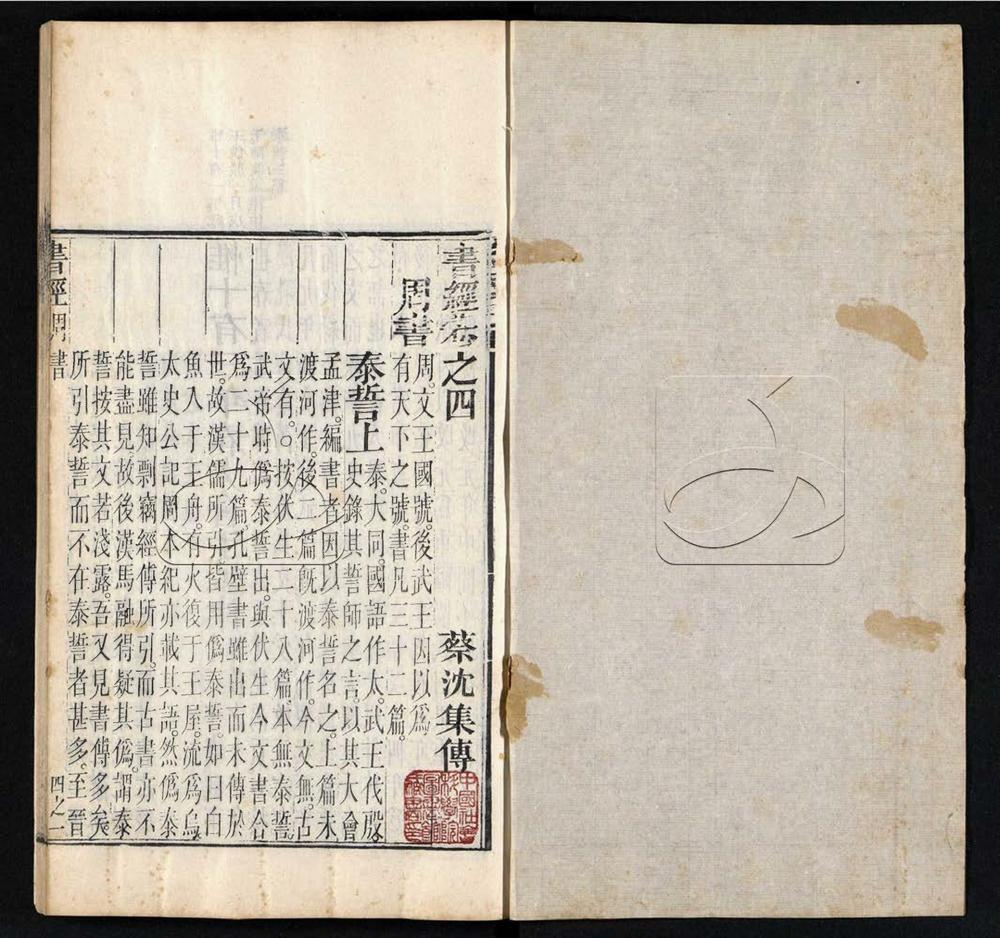 書經卷之四　蔡沈集傳
周書
周。文王國號。後武王因以爲
有天下之號。書凡三十二篇。
泰誓上
泰。大同。國語作太。武王伐殷。
史錄其誓師之言。以其大會
孟津。編書者因以泰誓名之。上篇未
渡河作。後二篇旣渡河作。今文無。古
文有。○按伏生二十八篇。本無泰誓。
武帝時。僞泰誓出。與伏生今文書合
爲二十九篇。孔壁書雖出。而未傳於
世。故漢儒所引。皆用僞泰誓。如曰白
魚入于王舟。有火復于王屋。流爲烏。
太史公記周本紀亦載其語。然僞泰
誓雖知剽竊經傳所引。而古書亦不
能盡見。故後漢馬融得疑其僞。謂泰
誓按其文若淺露。吾又見書傳多矣。
所引泰誓而不在泰誓者甚多。至晉
書經 周書 四之一
中國社會科學院圖書館藏書印